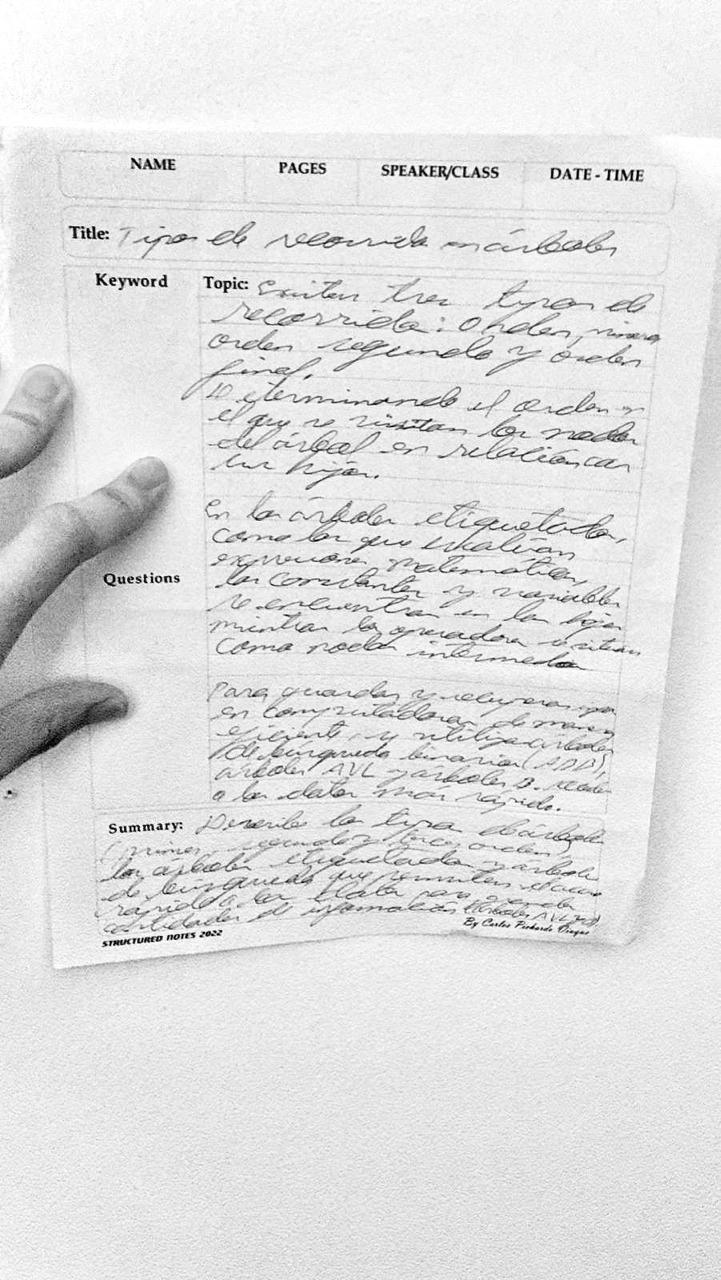 NAME PAGES SPEAKER/CLASS DATE - TIME
Title: Tipos de recorrido en árboles
Keyword Topic: Existen tres tipos de
recorrido: Orden primero
orden segundo y orden
final.
Determinando el orden en
el que se visitan los nodos
del árbol en relación con
sus hijos.
En los árboles etiquetados,
como los que evalúan
expresiones matemáticas,
Questions
las constantes y variables
se encuentran en las hojas
mientras los operadores
como nodos intermedios
Para guardar y recuperar
en computadoras de manera
eficiente, y utiliza árboles
de búsqueda binaria (ADB),
árboles AVL y árboles B.
a los datos más rápido.
Summary: Describe los tipos de árboles
(primer, segundo y orden,
los árboles etiquetados y árboles
de búsqueda que permiten el acceso
rápido a los para grandes
cantidades de información (Árboles AVL y B)
STRUCTURED NOTES 2022
By Carlos Pichardo Viuque